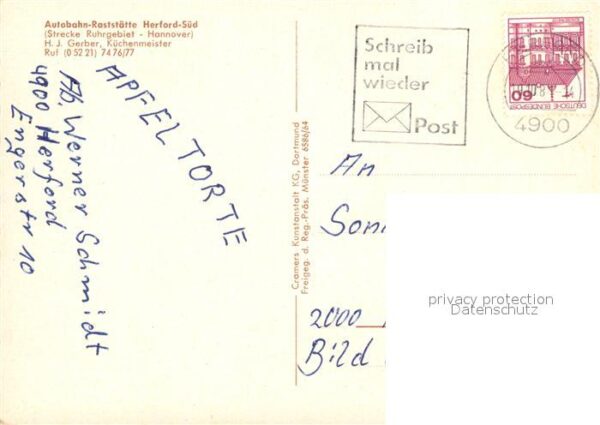 Autobahn-Raststätte Herford-Süd
(Strecke Ruhrgebiet - Hannover)
H. J. Gerber, Küchenmeister
Ruf (0 52 21) 74 76/77
APFELTORTE
Ab. Werner Schmidt
4900 Herford
Engerstr 10
Cramers Kunstanstalt KG, Dortmund
Freigeg. d. Reg.-Präs. Münster 6586/64
Schreib
mal
wieder
Post
60
DEUTSCHE BUNDESPOST
4900
An
Sonn
2000
Bild
privacy protection
Datenschutz